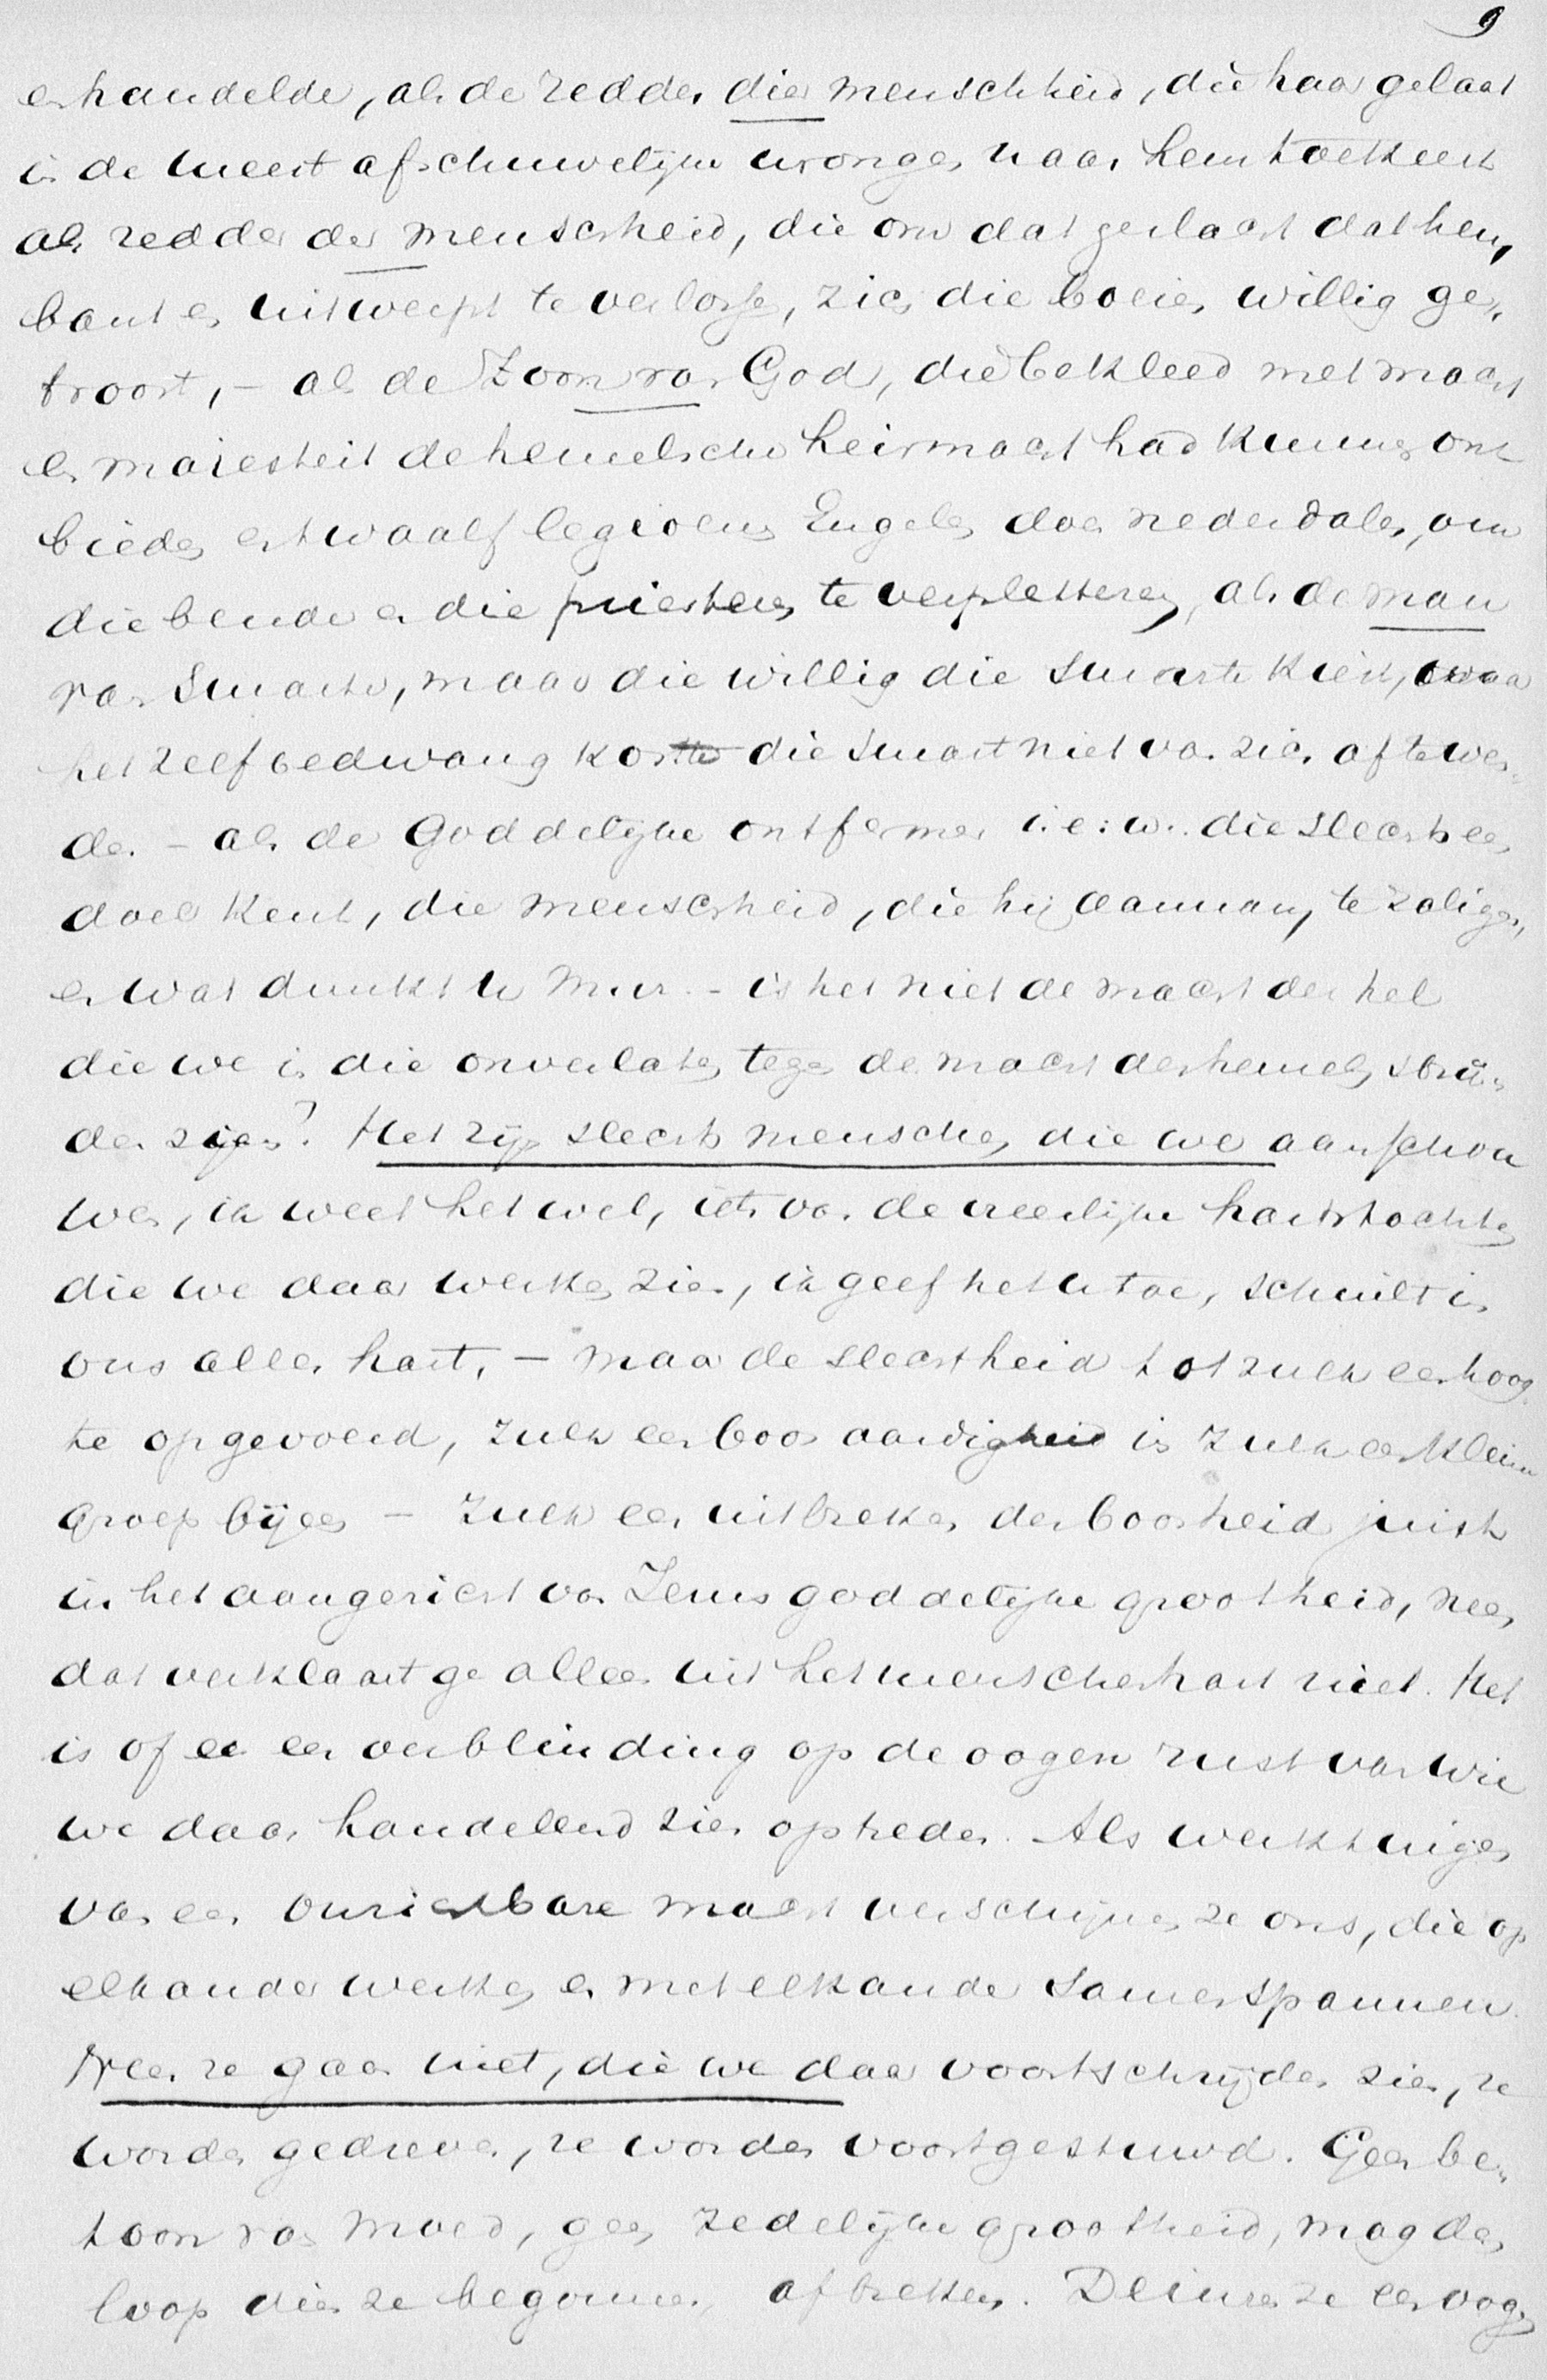 9
en handelde, als de redder dier menschheid, die haar gelaat
in de meest afschuwelijke wrongen naar hem toekeert
als redder der menscheid, die om dat geslacht dat hem
bant en uitwerpt te verlossen, zich die boeien willig ge-
troost, – als de Zoon van God, die bekleed met macht
en majesteit de hemelsche heirmacht had kunnen ont
bieden en twaalf legioenen Engelen doen nederdalen, om
die bende en die priesters te verpletteren, als de man
van Smarte, maar die willig die smarte kiest, waa
het zelfbedwang kostte die smart niet van zich af te wen-
den – als de Goddelijke ontfermer i. e: w. die slechts een
doel kent, die menscheid, die hij aannam, te zaligen,
en wat dunkt u M. v. – is het niet de macht der hel
die we in die onverlaten tegen de macht des hemels strij-
den zien? Het zijn slechts menschen, die we aanschou
wen, ik weet het wel, iets van de vreeslijke hartstochten
die we daar werken zien, ik geef het u toe, schuilt in
ons aller hart, – maar de slechtheid tot zulk een hoog-
te opgevoerd, zulk een boosaardigheid in zulk een kleinen
groep bijeen – zulk een uitbreken der boosheid juist
in het aangezicht van Jezus goddelijke grootheid, neen,
dat verklaart ge alleen uit het menschenhart niet. Het
is of er een verblinding op de oogen rust van wie
we daar handelend zien optreden. Als werktuigen
van een onzichtbare macht verschijnen ze ons, die op
elkander werken en met elkander samenspannen.
Neen ze gaan niet, die we daar voortschrijden zien, ze
worden gedreven, ze worden voortgestuwd. Geen be-
toon van moed, geen zedelijke grootheid, mag den
loop dien ze begonnen afbreken. Deinzen ze een oogen